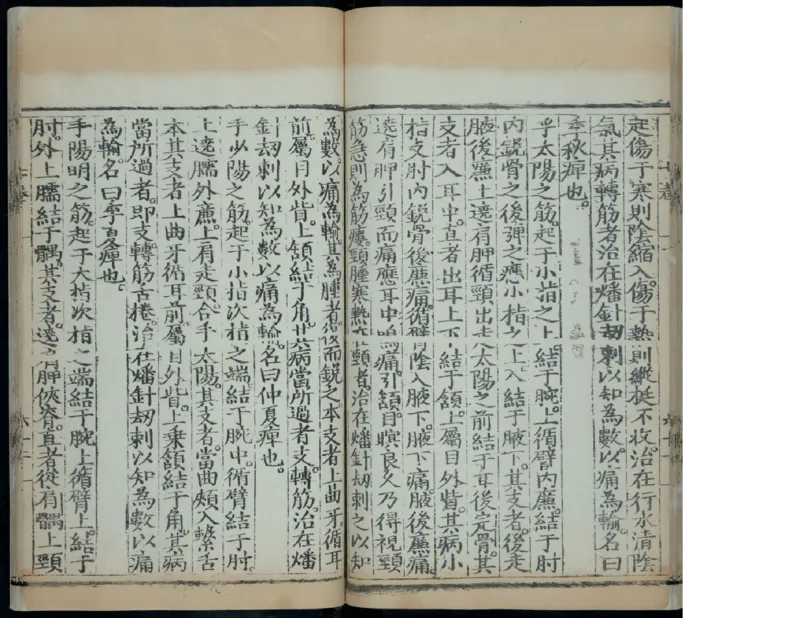 起傷于寒則陰縮入。傷于熱則縱挺不收。治在行水清陰
氣其病轉筋者治在燔針刼刺以知為數以痛為輸。名曰
季秋痺也。
手太陽之筋起于小指之上結于腕上循臂內廉。結于肘
內銳骨之後彈之應小指之上入結于腋下。其支者。後走
腋後廉上遶肩胛循頸出走太陽之前結于耳後完骨。其
支者入耳中。直者出耳上下結于頷。上屬目外眥。其病小
指支肘內銳骨後廉痛循臂陰入腋下。腋下痛腋後廉痛
遶肩胛引頸而痛應耳中鳴痛。引頷目瞑良久乃得視頸
筋急則為筋瘻。頸腫寒熱在頸者。治在燔針刼刺之以知
為數。以痛為輸。其為腫者。復而銳之。本支者上曲牙。循耳
前。屬目外眥。上頷結于角。其病當所過者支轉筋。治在燔
針刼刺以知為數以痛為輸。名曰仲夏痺也。
手少陽之筋起于小指次指之端結于腕中。循臂結于肘
上遶臑外廉。上肩走頸合手太陽。其支者。當曲頰入繫舌
本其支者上曲牙循耳前。屬目外眥。上乘頷結于角。其病
當所過者。即支轉筋舌捲。治在燔針刼刺以知為數以痛
為輸。名曰季夏痺也。
手陽明之筋。起于大指次指之端結于腕上循臂上。結于
肘。外上臑結于髃。其支者。遶肩胛俠脊。直者從肩髃上頸